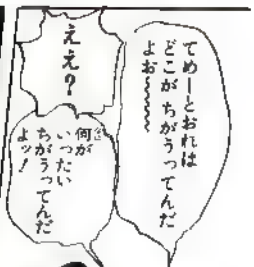 てめーとおれは
どこがちがうってんだ
よお〜〜〜〜〜
ええ?
何が
いったい
ちがうってんだ
よッ!